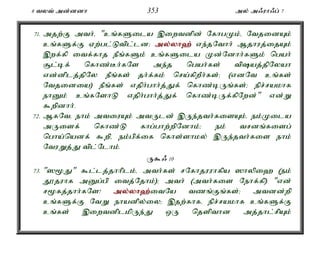 8 வலவ் அன்னனா 353 அல் அஃராஃப் 7
71. அதற்கு அவர், "உங்களுடைய இறைவனின் கோபமும், வேதனையும்
உங்களுக்கு ஏற்பட்டுவிட்டன; அல்லாஹ் எந்தவோர் ஆதாரத்தையும்
இறக்கி வைக்காத நீங்களும் உங்களுடைய முன்னோர்களும் பெயர்
சூட்டிக் கொண்டீர்களே அந்த பெயர்கள் விஷயத்திலேயா
என்னிடத்திலே நீங்கள் தர்க்கம் செய்கிறீர்கள்; (எனவே உங்கள்
வேதனையை) நீங்கள் எதிர்பார்த்துக் கொண்டிருங்கள்; நிச்சயமாக
நானும் உங்களோடு எதிர்பார்த்துக் கொண்டிருக்கிறேன்" என்று
கூறினார்.
72. ஆகவே, நாம் அவரையும் அவருடன் இருந்தவர்களையும், நம்முடைய
அருளைக் கொண்டு காப்பாற்றினோம்; நம் வசனங்களைப்
பொய்யெனக் கூறி, நம்பிக்கை கொள்ளாமல் இருந்தவர்களை நாம்
வேரறுத்து விட்டோம்.
ருகூஃ 10
73. "ஸமூது" கூட்டத்தாரிடம், அவர்கள் சகோதரராகிய ஸாலிஹை (நம்
தூதராக அனுப்பி வைத்தோம்); அவர் (அவர்களை நோக்கி) "என்
சமூகத்தார்களே! அல்லாஹ்வையே வணங்குங்கள்; அவனன்றி
உங்களுக்கு வேறு நாயனில்லை; இதற்காக, நிச்சயமாக உங்களுக்கு
உங்கள் இறைவனிடமிருந்து ஒரு தெளிவான அத்தாட்சியும்